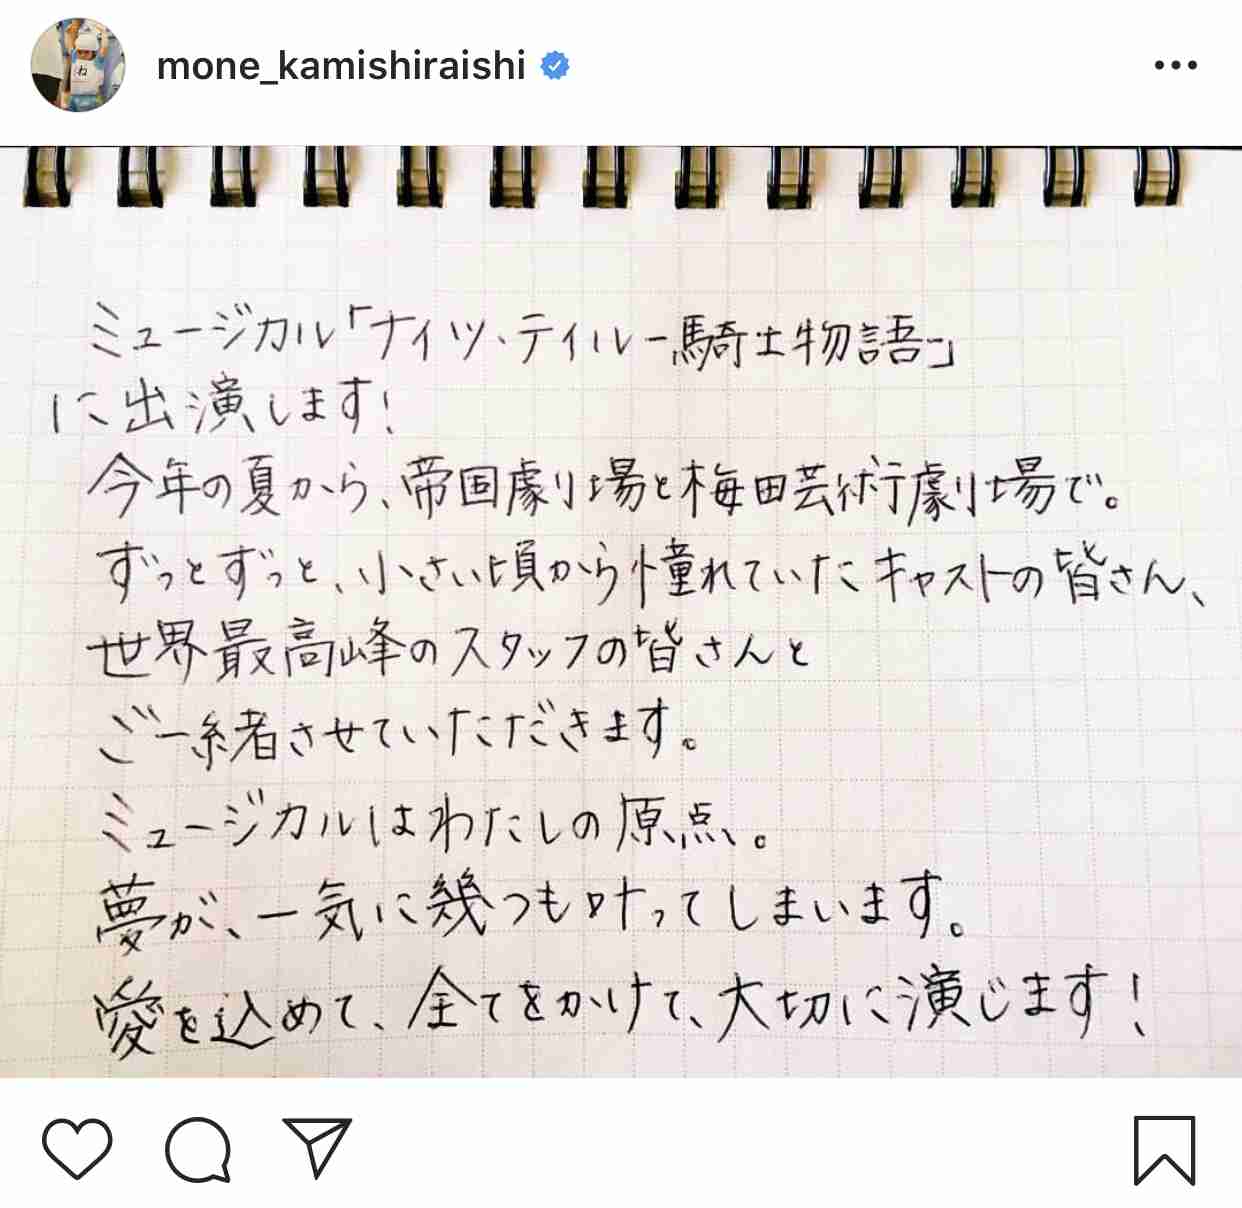 mone_kamishiraishi
ね
ミュージカル「ナイツ・テイル ー騎士物語ー」
に出演します!
今年の夏から、帝国劇場と梅田芸術劇場で。
ずっとずっと、小さい頃から憧れていたキャストの皆さん、
世界最高峰のスタッフの皆さんと
ご一緒させていただきます。
ミュージカルはわたしの原点。
夢が、一気に幾つも叶ってしまいます。
愛を込めて、全てをかけて、大切に演じます!